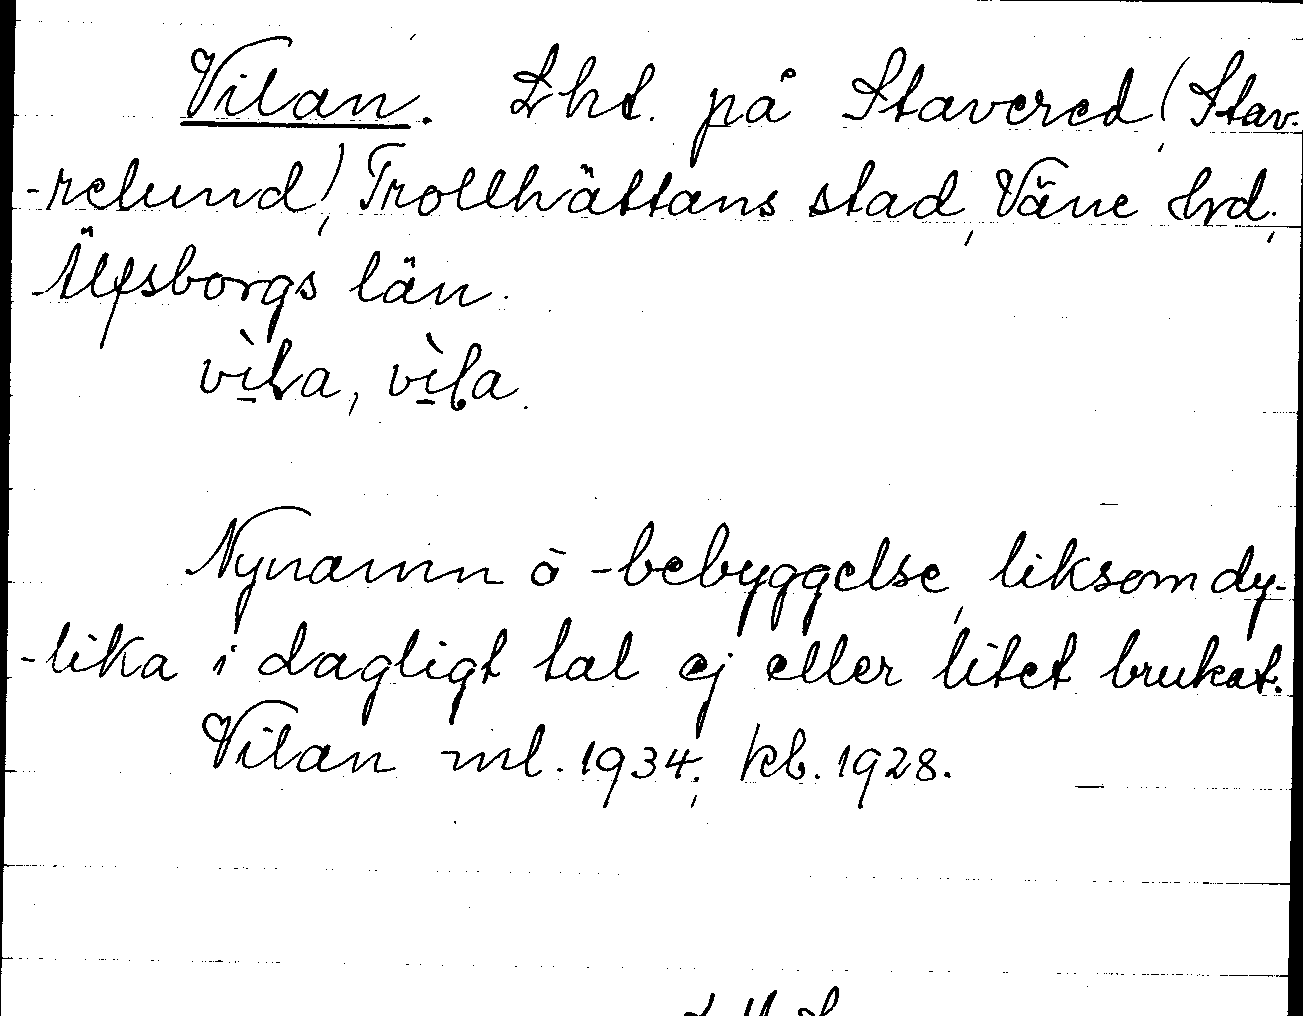 Vilan. Lht. på Stavered (Stav-
-relund), Trollhättans stad, Väne hrd.,
Älfsborgs län.
vìla, vìla.
Nynamn o -bebyggelse, liksom dy-
-lika i dagligt tal ej eller litet brukat.
Vilan ml. 1934; kb. 1928.